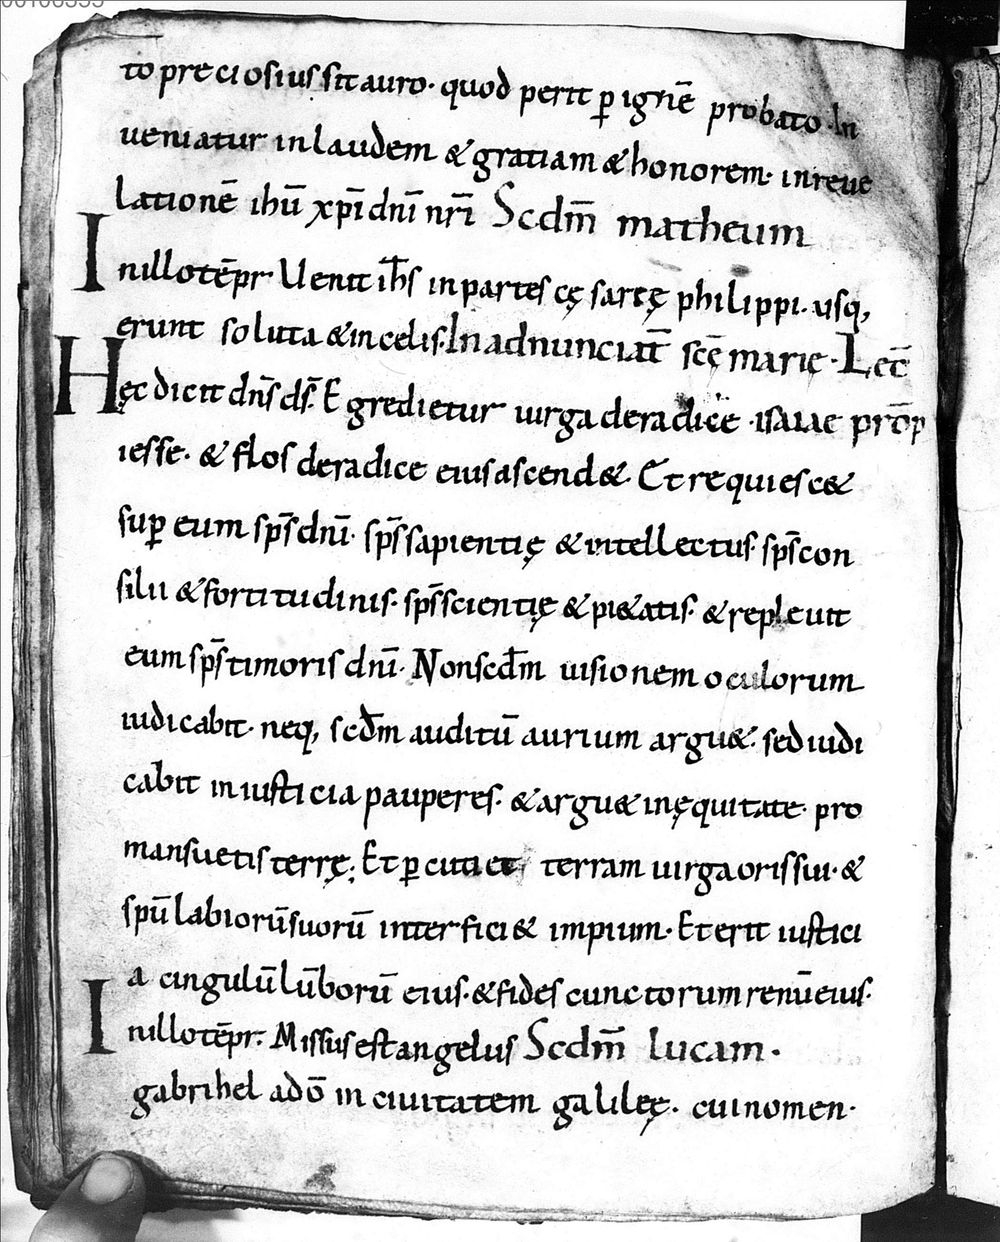 00106555
to preciosius sit auro· quod perit ꝑ ignē probato· In
ueniatur in laudem & gratiam & honorem· in reue
lationē ihū xp̄i dn̄i nr̄i Scdm̄ matheum
In illo tēpr Uenit ih̄s in partes cęsaręę philippi· usq,
erunt soluta & in celis· In adnunciat̄ scę̄ marię· Lec̄
Hęc dicit dn̄s ds̄· Egredietur uirga de radice· isaiae prop̄
iesse· & flos de radice eius ascend&· Et requiesc&
suꝑ eum sp̄s dn̄i· sp̄s sapientię & intellectus· sp̄s con
silii & fortitudinis· sp̄s scientię & pi&atis· & repleuit
eum sp̄s timoris dn̄i· Non scd̄m uisionem oculorum
iudicabit· neq, scd̄m auditū aurium argu&· sed iudi
cabit in iusticia pauperes· & argu& in ęquitate· pro
mansuetis terrę; Et ꝑcuti et terram uirga oris sui· &
spū labiorū suorū interfici& impium· Et erit iustici
a cingulū lūborū eius· & fides cunctorum renū eius·
In illo tēpr· Missus est angelus Scdm̄ lucam·
gabrihel a dō in ciuitatem galileę· cui nomen·